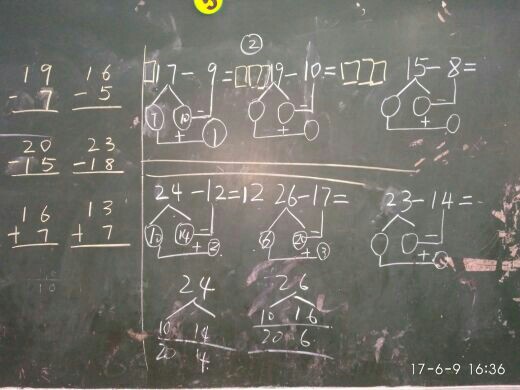 ②
19 16
- 7 - 5
20 23
-15 -18
16 13
+ 7 + 7
17 - 9 =
7 10 -
+ 1
19 - 10 =
-
+
15 - 8 =
-
+
24 - 12 = 12
10 14 -
+ 2
26 - 17 =
6 20 -
+ 3
23 - 14 =
-
+
24
10 14
20 4
26
10 16
20 6
17-6-9 16:36